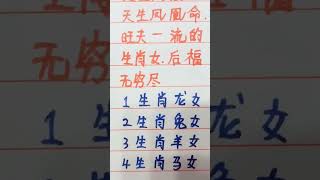 天生凤凰命.
旺夫一流的
生肖女.后福
无穷尽
1生肖龙女
2生肖兔女
3生肖羊女
4生肖马女